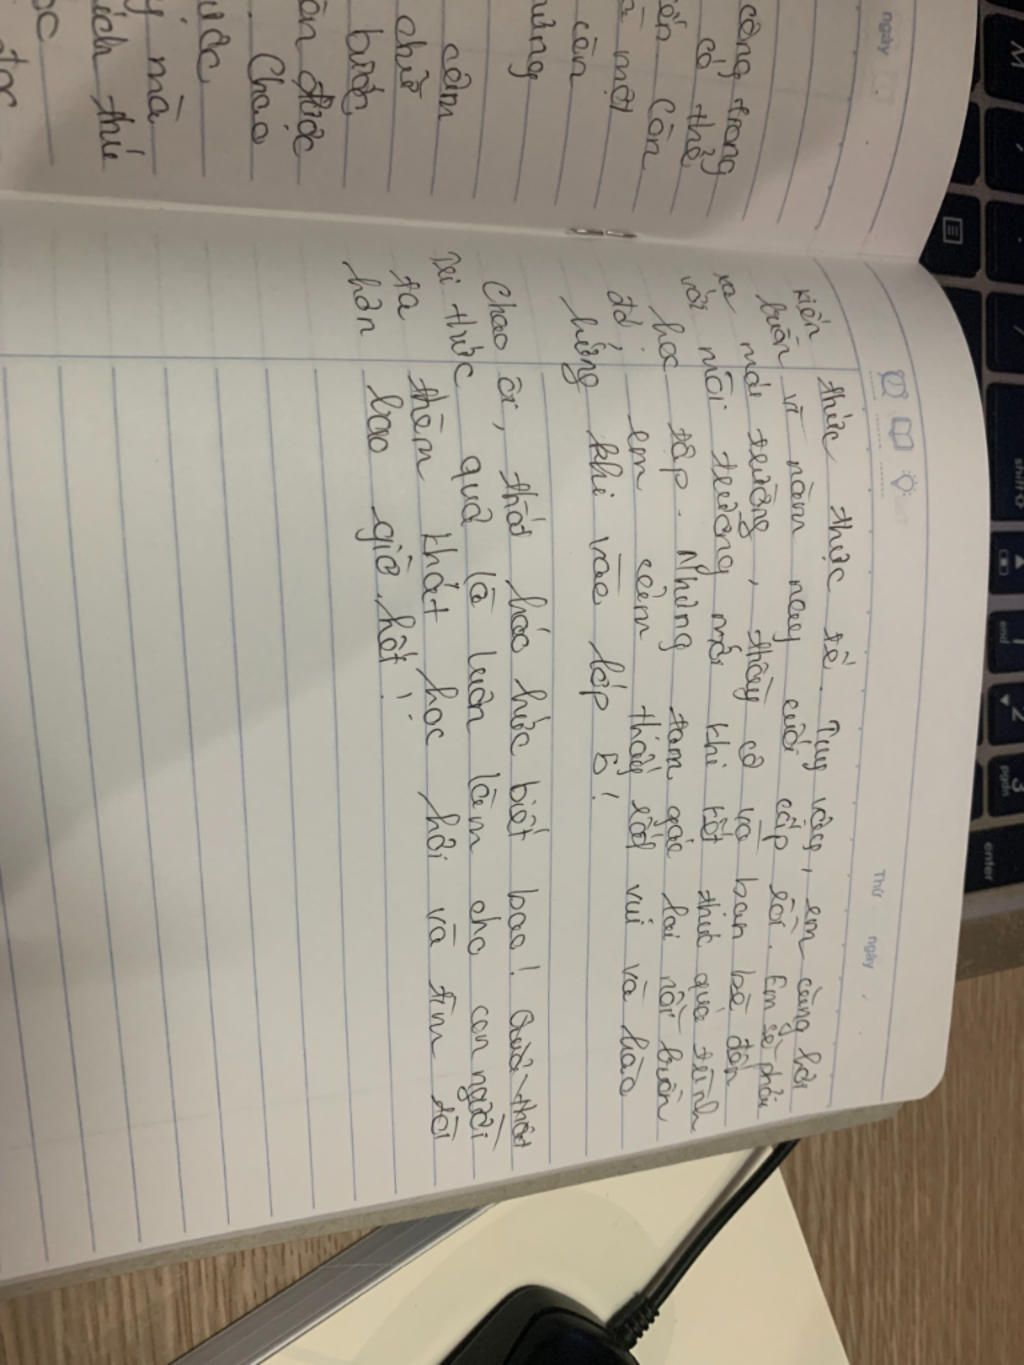 ngày
công trong
có thể
Còn
một
cần
cảm
chữ
bước
được
Chao
mà
ích thú
Thứ ngày
kiến thức thực tế. Tuy vậy, em cũng hơi
buồn vì năm nay cuối cấp rồi. Em sẽ phải
xa mái trường, thầy cô và bạn bè đến
với môi trường mới khi kết thúc quá trình
học tập. Nhưng tạm gác lại nỗi buồn
đó, em cảm thấy rất vui và hào
hứng khi vào lớp 5!
Chao ôi, thật háo hức biết bao! Quả thật
Tri thức quả là luôn làm cho con người
ta thèm khát học hỏi và tìm tòi
hơn bao giờ hết!
M
shift
end
1
2
3
pgdn
enter